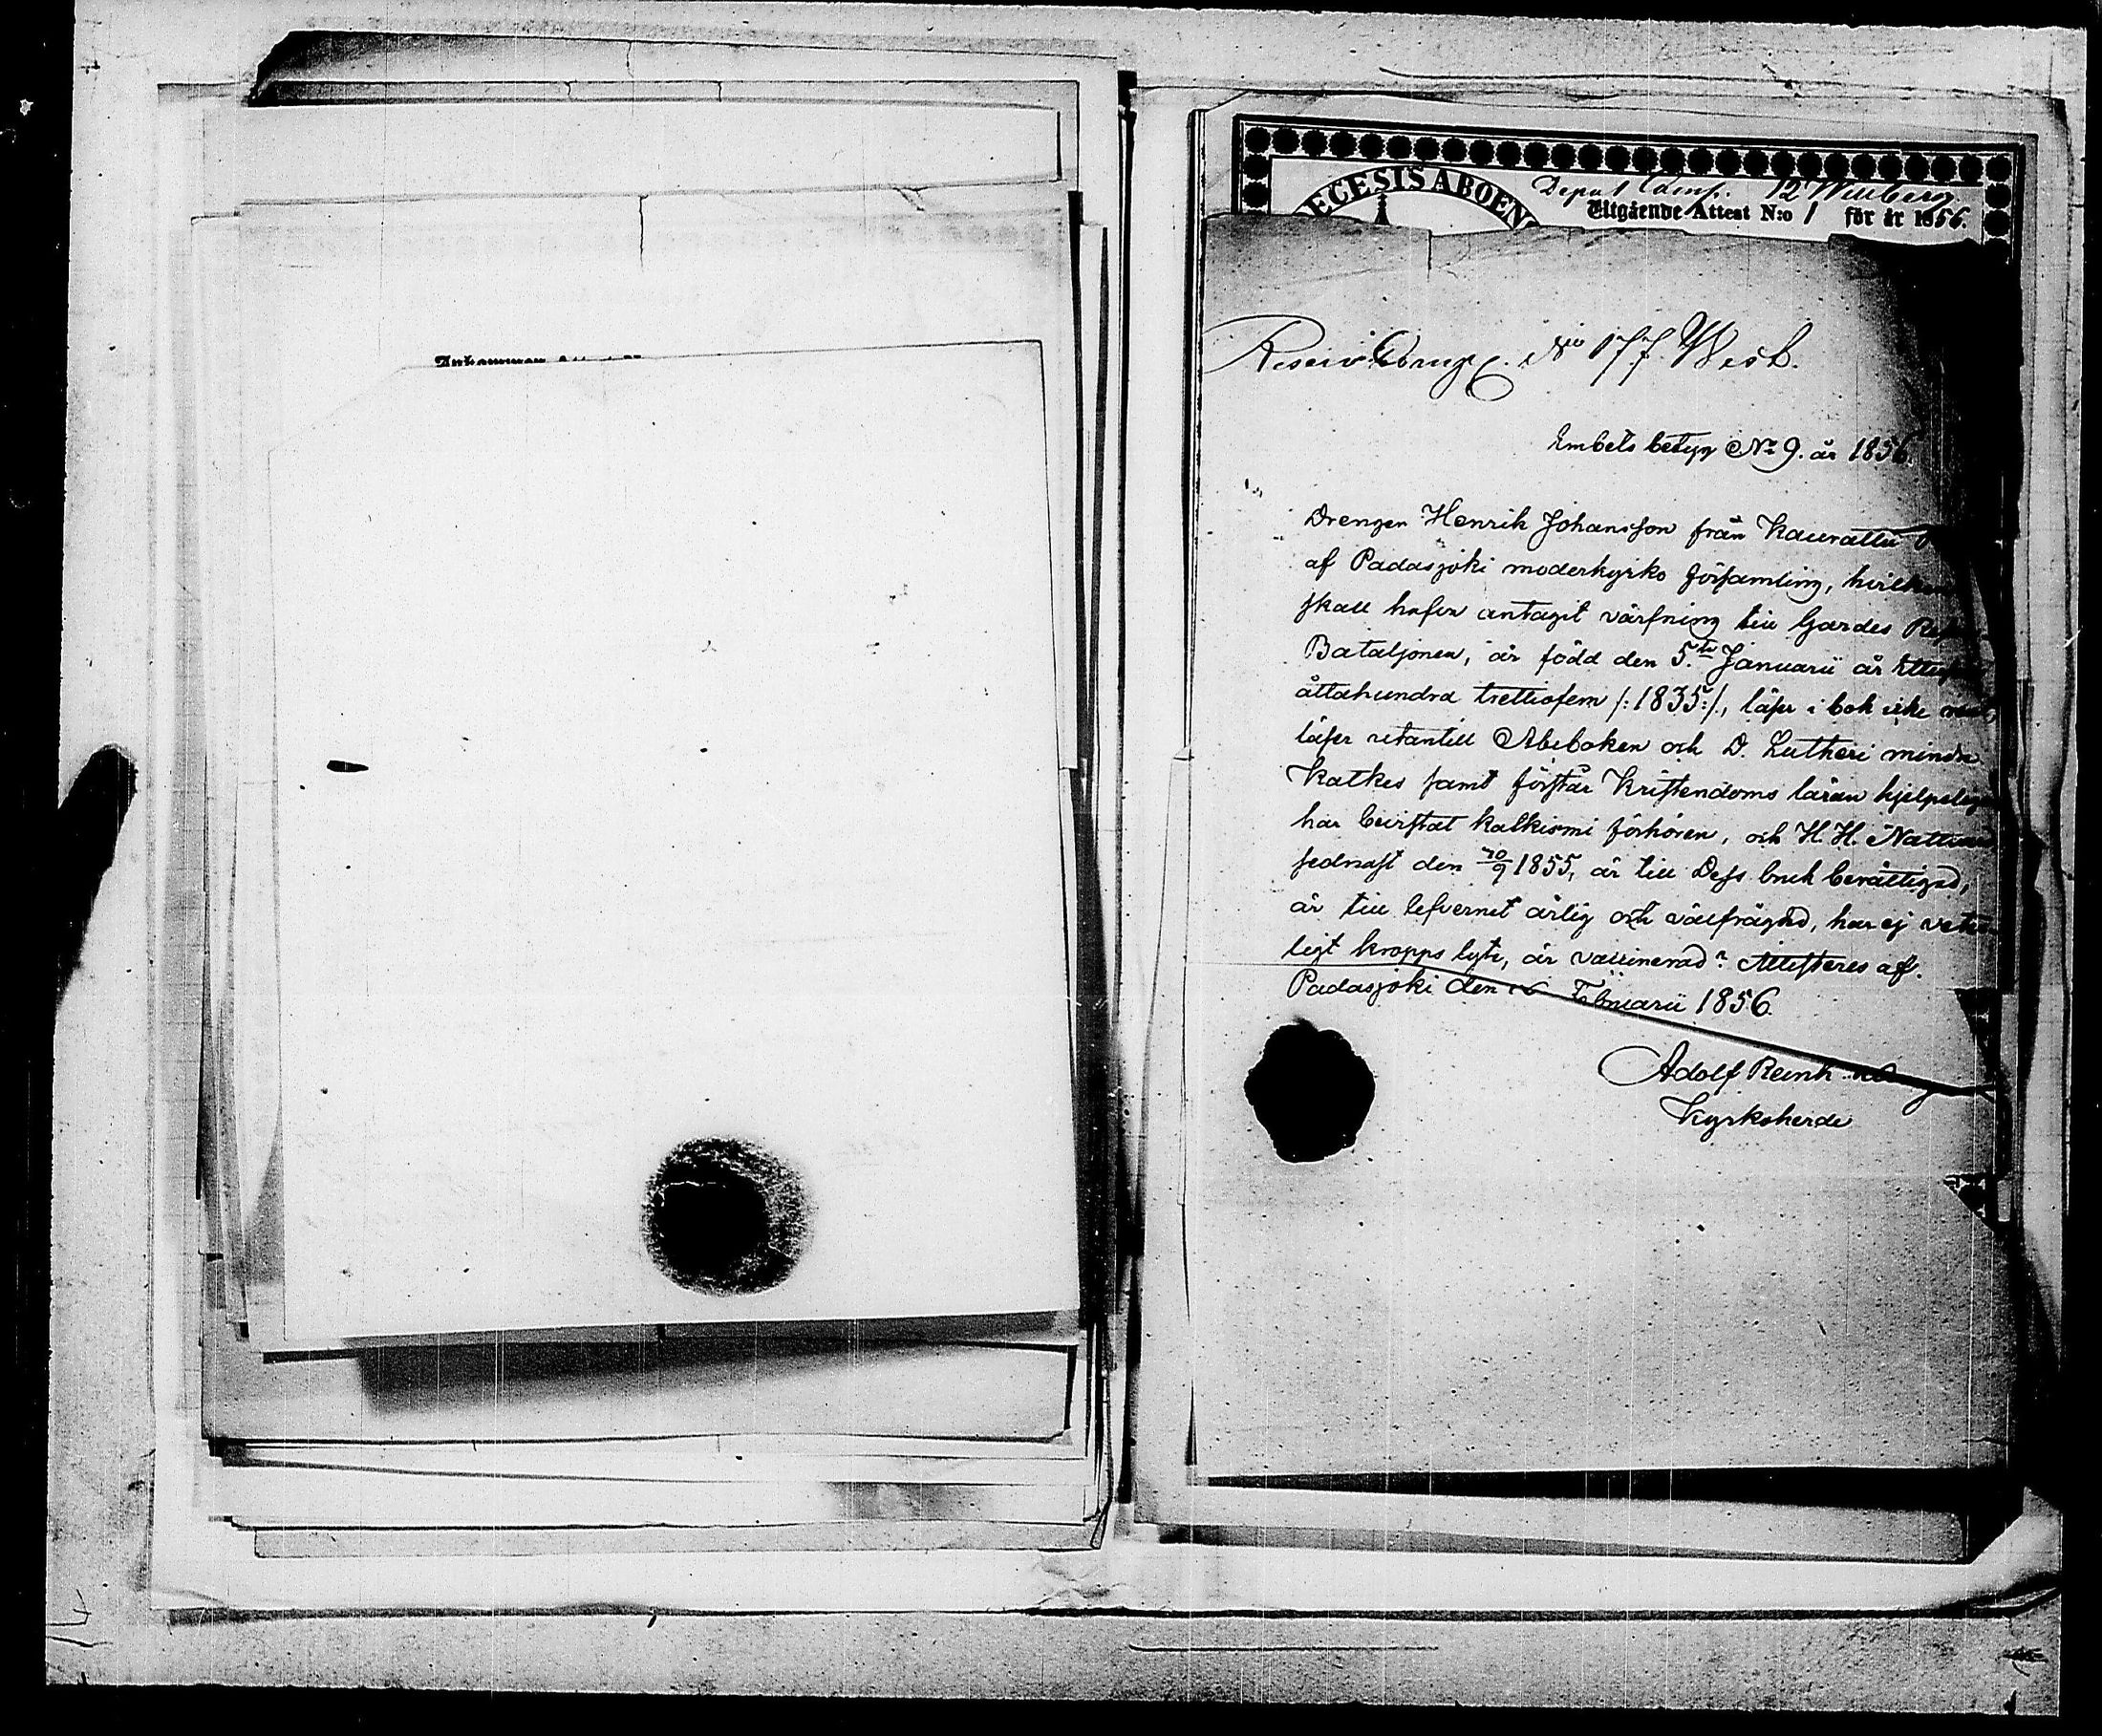 DECESIS ABOEN
Depot Comp. 12 Willberg
Utgående Attest N:o 1 för år 1856.
N:o 177 West.
Embets betyg No 9. år 1856.
Drengen Henrik Johansson från Kaurattu
af Padasjoki moderkyrko församling, hvilken
skall hafva antagit värfning till Gardes
Bataljonen, är född den 5.te Januarii år
åttahundra trettiofem /:1835:/, läser i bok icke
läser utantill Abcboken och D. Lutheri mindre
Katkes samt förstår Kristendoms läran hjelpeligen
har bevistat katkismi förhören, och H. H. Nattvard
sednast den 30/9 1855, är till Dess bruk berättigad,
är till lefvernet ärlig och välfrägdad, har ej veter
ligt kropps lyte, är vaccinerad? Attesteras af.
Padasjoki den Februarii 1856.
Adolf
Kyrkoherde